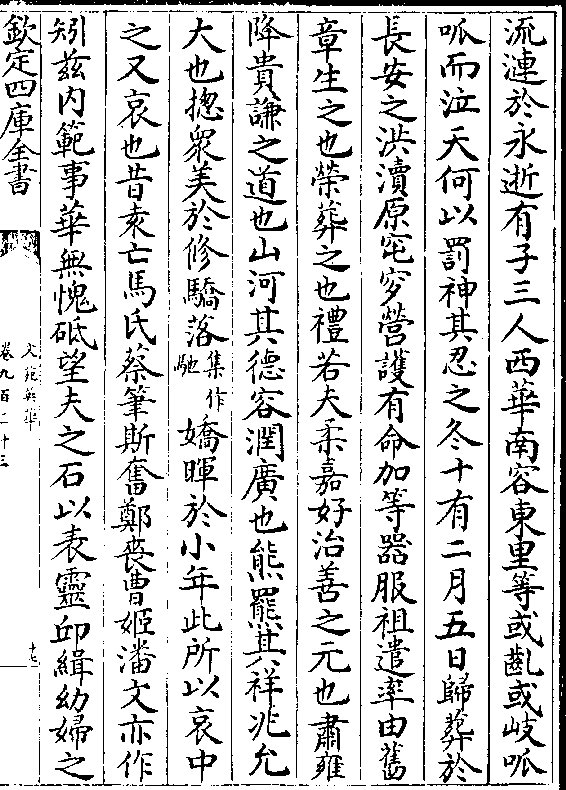 流漣於永逝有子三人西華南容東里等或齓或岐呱
呱而泣天何以罰神其忍之冬十有二月五日歸葬於
長安之洪瀆原窀穸營護有命加等器服祖遣率由舊
章生之也榮葬之也禮若夫柔嘉好治善之元也肅雍
降貴謙之道也山河其德容潤廣也熊羆其祥兆允
大也揔衆美於修驕落集作馳嬌暉於小年此所以哀中
之又哀也昔袁亡馬氏蔡筆斯奮鄭喪曹姬潘文亦作
矧兹内範事華無愧砥望夫之石以表靈丘緝幼婦之
欽定四庫全書
文苑英華
卷九百二十三
十七